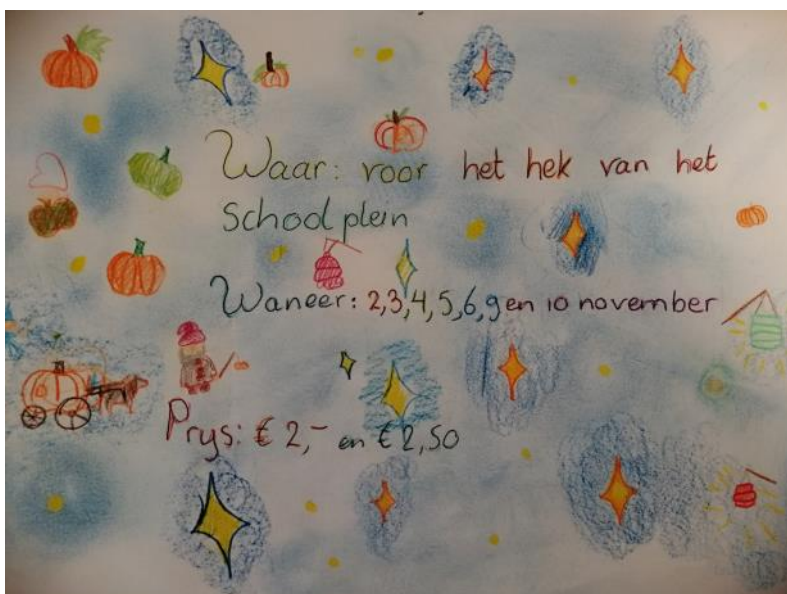 Waar: voor het hek van het
Schoolplein
Waneer: 2,3,4,5,6,9 en 10 november
Prys: € 2,- en € 2,50